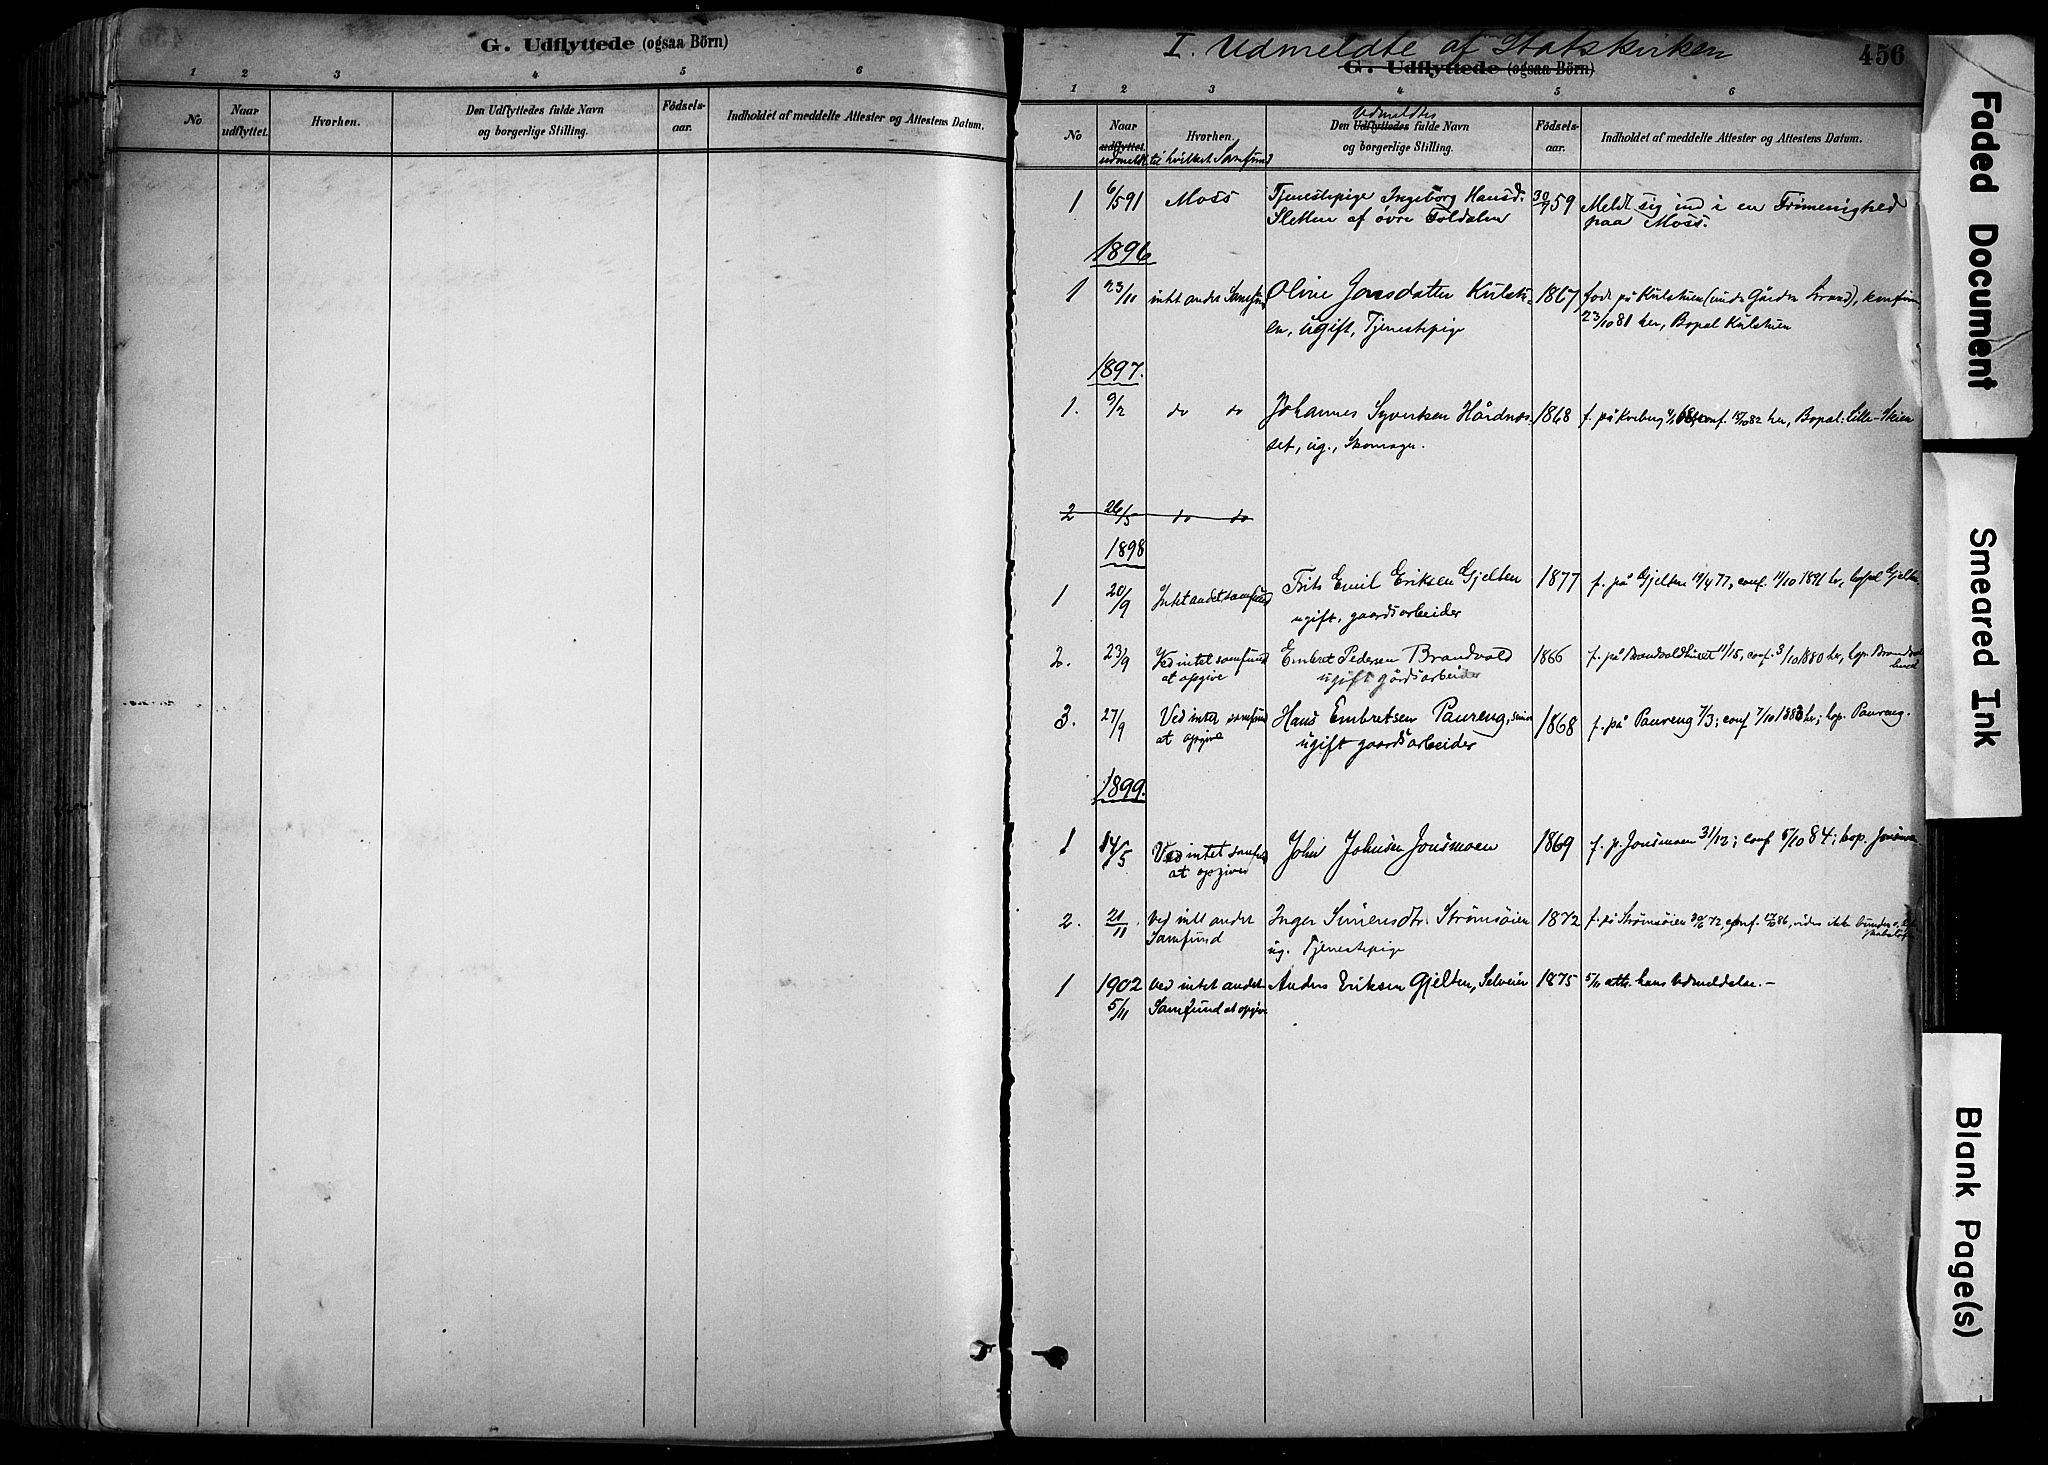 G. Udflyttede (ogsaa Börn)
1 2 3 4 5 6
No
Naar udflyttet.
Hvorhen.
Den Udflyttedes fulde Navn og borgerlige Stilling.
Fødsels-aar.
Indholdet af meddelte Attester og Attestens Datum.
I. Udmeldte af Statskirken
G. Udflyttede (ogsaa Börn)
456
1 2 3 4 5 6
No
Naar udflyttet. udmeldt
Hvorhen. til hvilket Samfund
Den Udflyttedes Udmeldtes fulde Navn og borgerlige Stilling.
Fødsels-aar.
Indholdet af meddelte Attester og Attestens Datum.
1 6/5 91 Moss Tjenestepige Ingeborg Hansd. 30/7 59 Meldt sig ind i en Frimenighed
Sletten af övre Foldalen paa Moss.
1896
1 23/11 intet andet Samfund Oline Jonsdatter Kulstu- 1867 født på Kulstuen (under Gården Strand), konfirm
en, ugift, Tjenestepige 23/10 81 her, Bopæl Kulstuen
1897.
1. 9/2 do do Johannes Syvertsen Hårdnes- 1868 f. på Kroberg conf. 15/10 82 her, Bopæl: Lille-Skien
set, ug., Skomager.
2 26/5 do do
1898
1 20/9 Intet andet samfund Frits Emil Eriksen Gjelten 1877 f. på Gjelten 77, conf. 11/10 1891 her, bopæl Gjelten
ugift, gaardsarbeider
2. 23/9 Ved intet samfund Embret Pedersen Brandvold 1866 f. på Brandvoldhuset conf. 3/10 1880 her, bop. Brandvold
at opgive ugift gårdsarbeider
3. 27/9 Ved intet samfund Hans Embretsen Paureng, 1868 f. på Paureng 7/3; conf 7/10 1883 her; bop. Paureng.
at opgive ugift gaardsarbeider
1899.
1 14/5 Ved intet samfund John Johnsen Jonsmoen 1869 f. p. Jonsmoen 31/12; conf 5/10 84; bop. Jonsmoen
at opgive
2. 21/11 Ved intet andet Inger Simensdtr. Strømsöien 1872 f. på Strømsöien 30/6 72, conf. 86, viden ikke bunden
Samfund ug. Tjenestepige
1 1902 Ved intet andet Anders Eriksen Gjelten, Selveier 1875 5/11 att. hans Udmeldelse.-
5/11 Samfund at opgive
Faded Document
Smeared Ink
Blank Page(s)